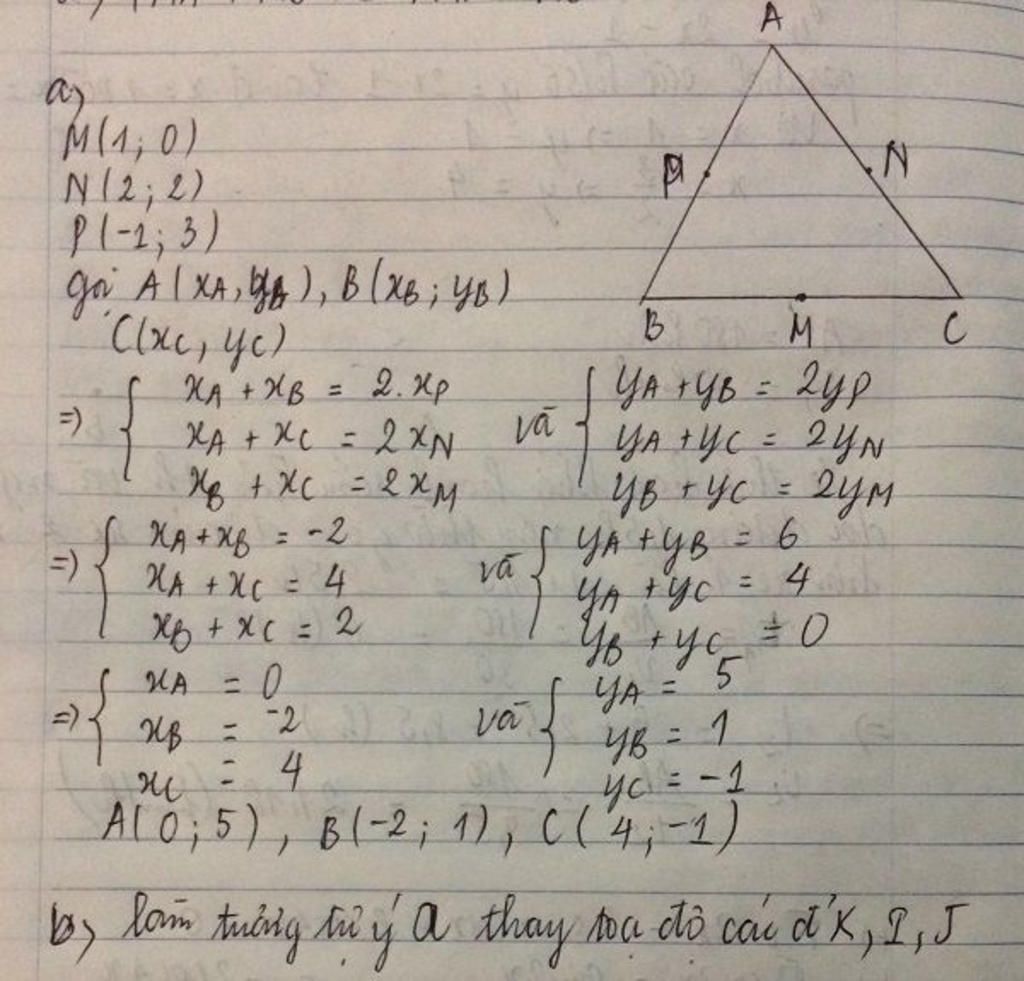 a)
M(1; 0)
N(2; 2)
P(-1; 3)
gọi A(xA, yB), B(xB; yB)
C(xC, yC)
A
P
N
B
M
C
=> { xA + xB = 2.xP
xA + xC = 2xN
xB + xC = 2xM
và { yA + yB = 2yP
yA + yC = 2yN
yB + yC = 2yM
=> { xA + xB = -2
xA + xC = 4
xB + xC = 2
và { yA + yB = 6
yA + yC = 4
yB + yC = 0
=> { xA = 0
xB = -2
xC = 4
và { yA = 5
yB = 1
yC = -1
A(0; 5), B(-2; 1), C(4; -1)
b) làm tương tự ý a thay toạ độ các đ' K, I, J